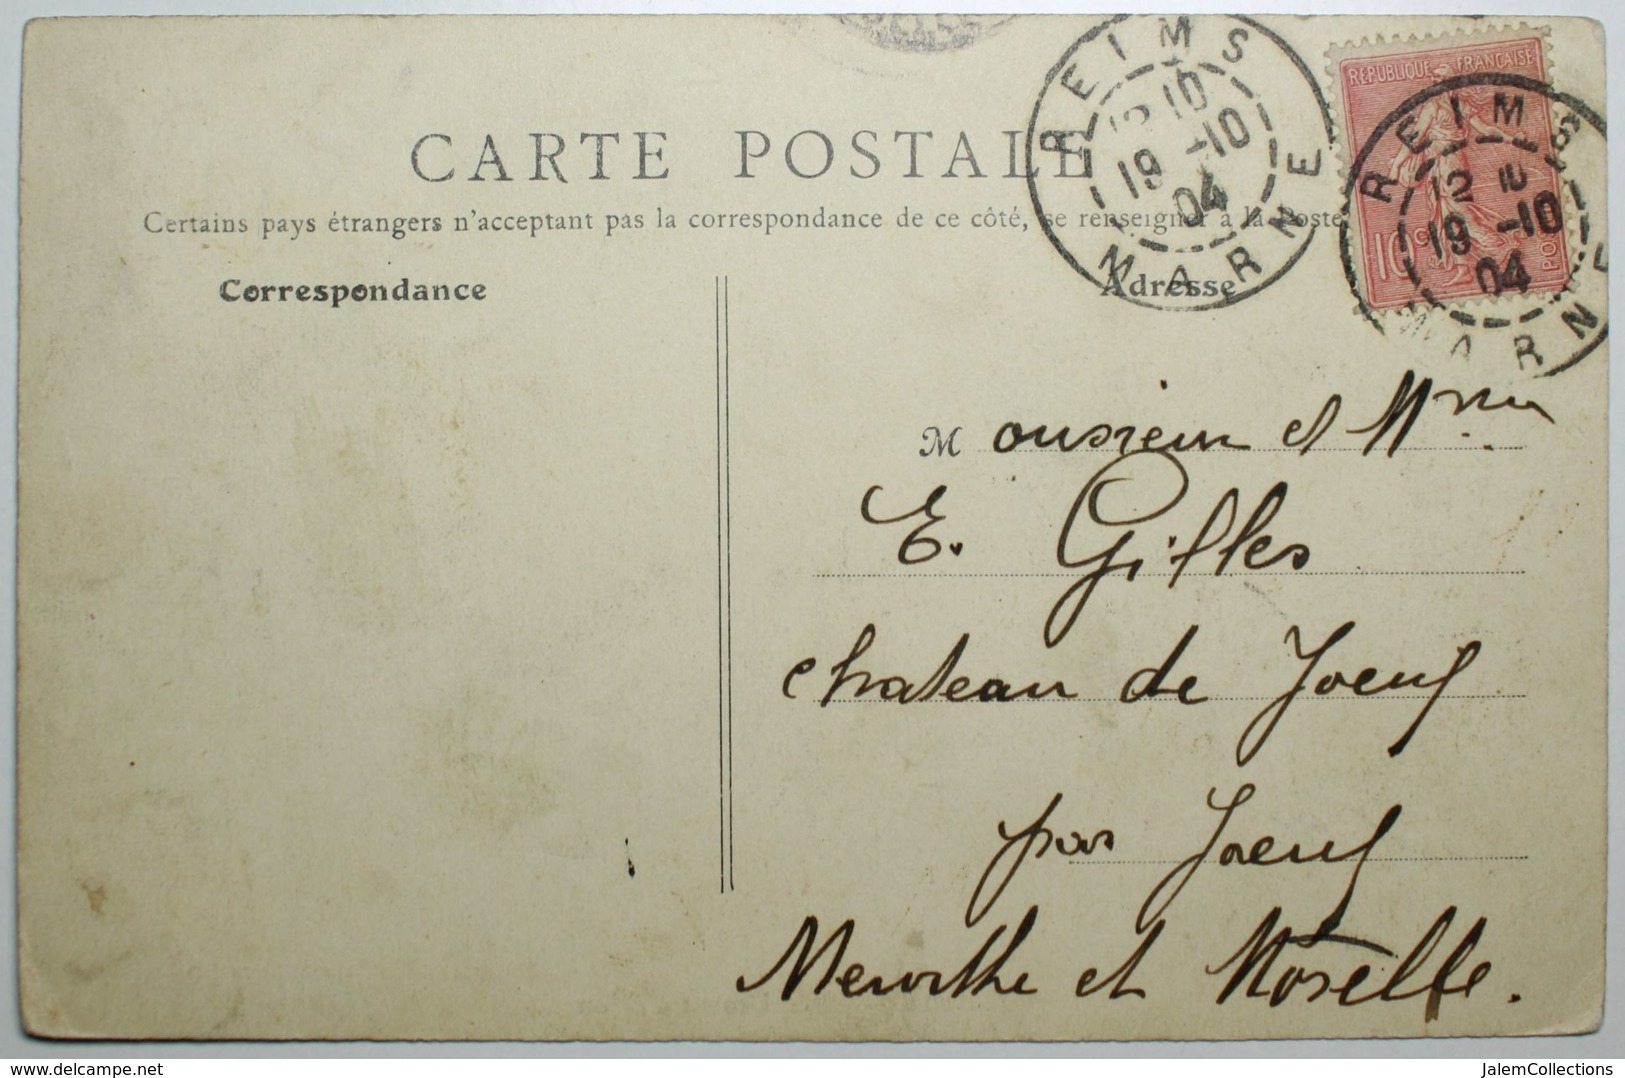 CARTE POSTALE
Certains pays étrangers n'acceptent pas la correspondance de ce côté, se renseigner à la Poste
Correspondance
Adresse
REIMS
12 10
19 -10
04
MARNE
REPUBLIQUE FRANÇAISE
10c
REIMS
12 10
19 -10
04
MARNE
Monsieur et Mme
E. Gilles
chateau de Joeuf
par Joeuf
Meurthe et Moselle.
delcampe.net
JalemCollections